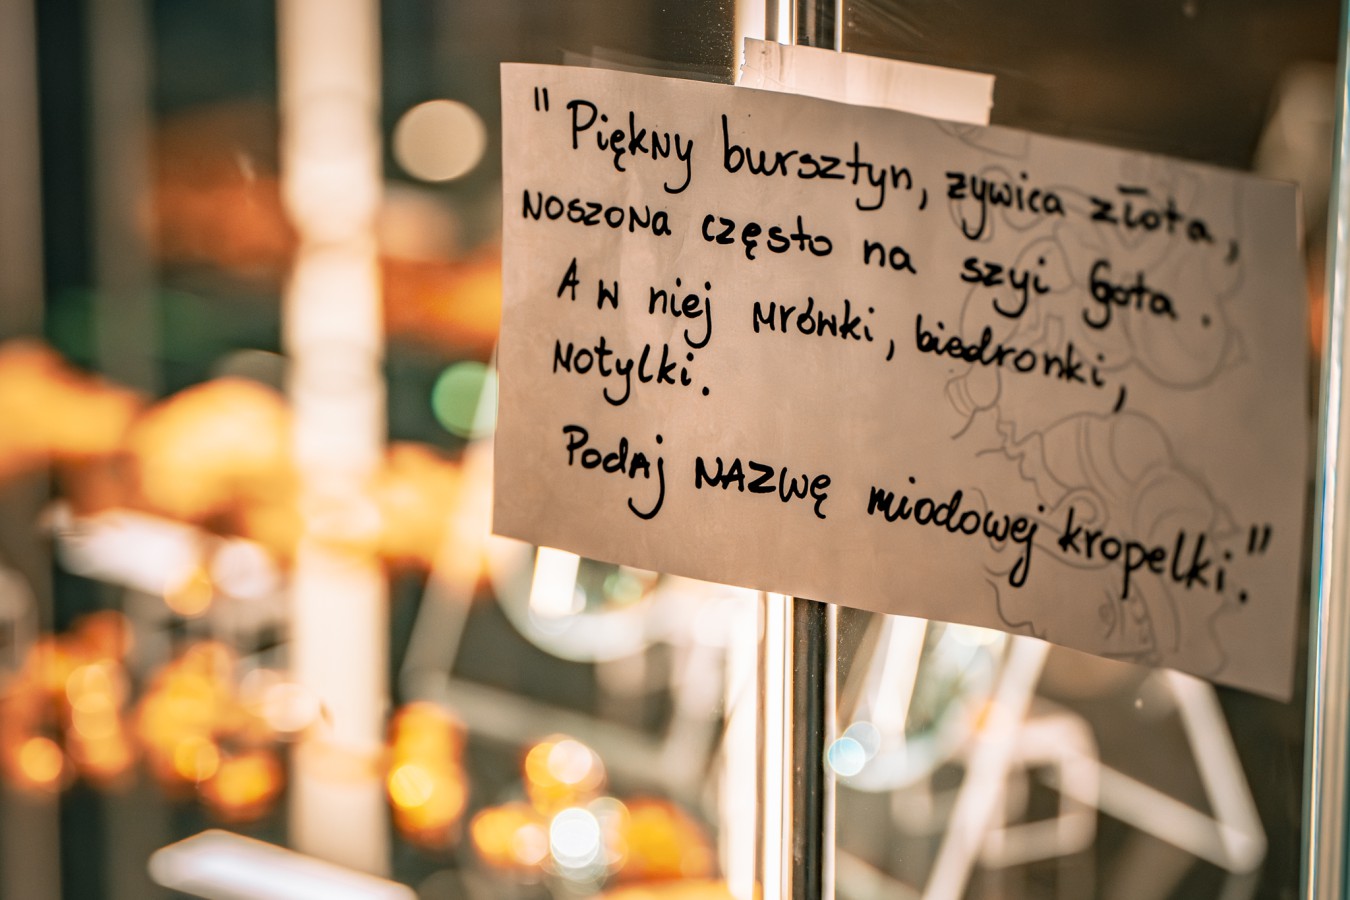 "Piękny bursztyn, zywica złota,
noszona często na szyi Gota.
A w niej mrówki, biedronki,
motylki.
Podaj NAZWĘ miodowej kropelki."